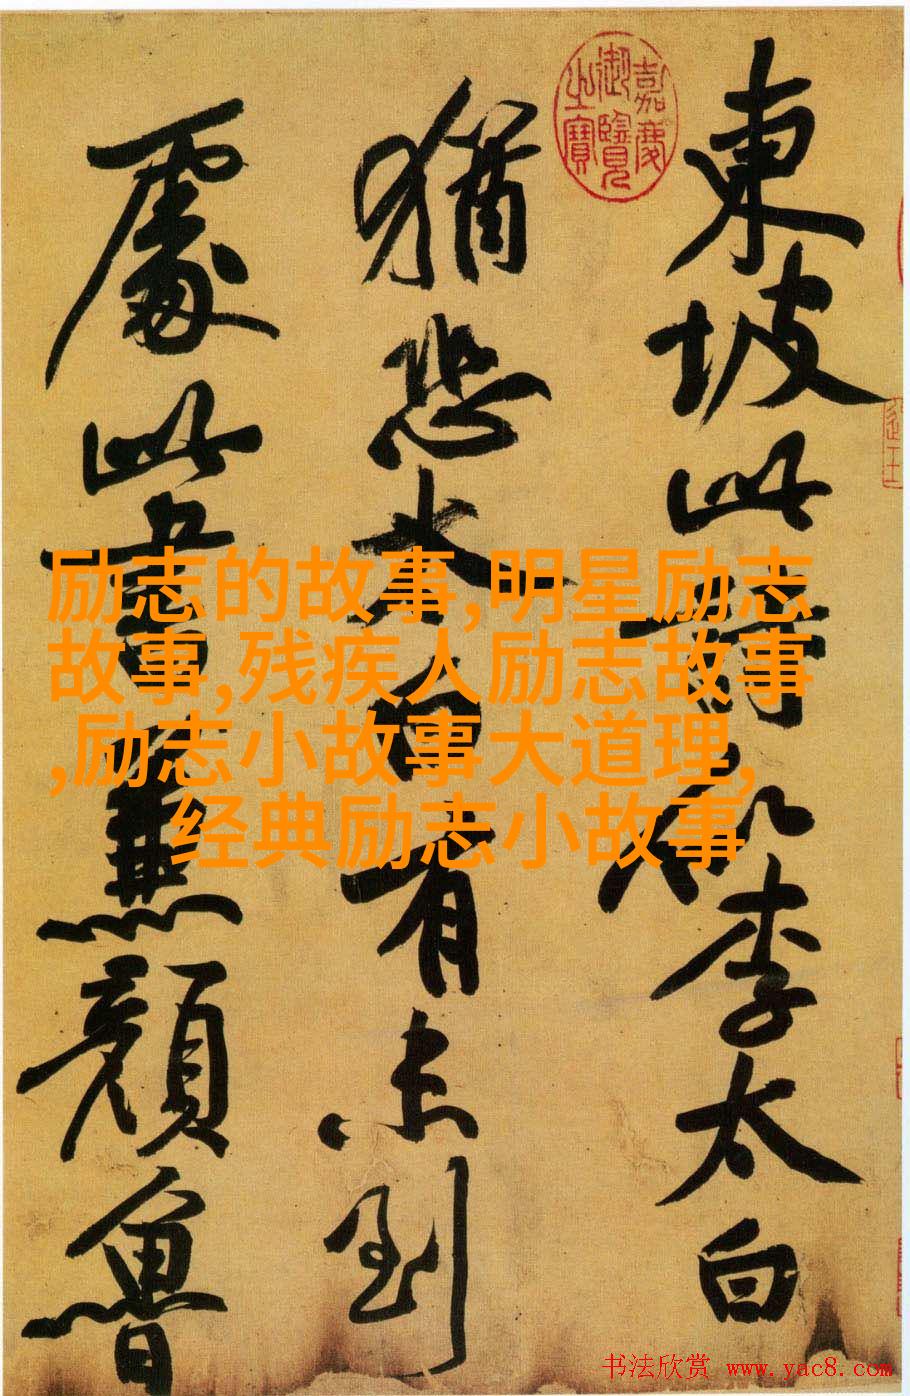 東坡此詩似李太白
猶恐太白有未到
處此書兼顏魯
嘉慶
御覽
之寶
励志的故事,明星励志
故事,残疾人励志故事
,励志小故事大道理,
经典励志小故事
书法欣赏 www.yac8.com